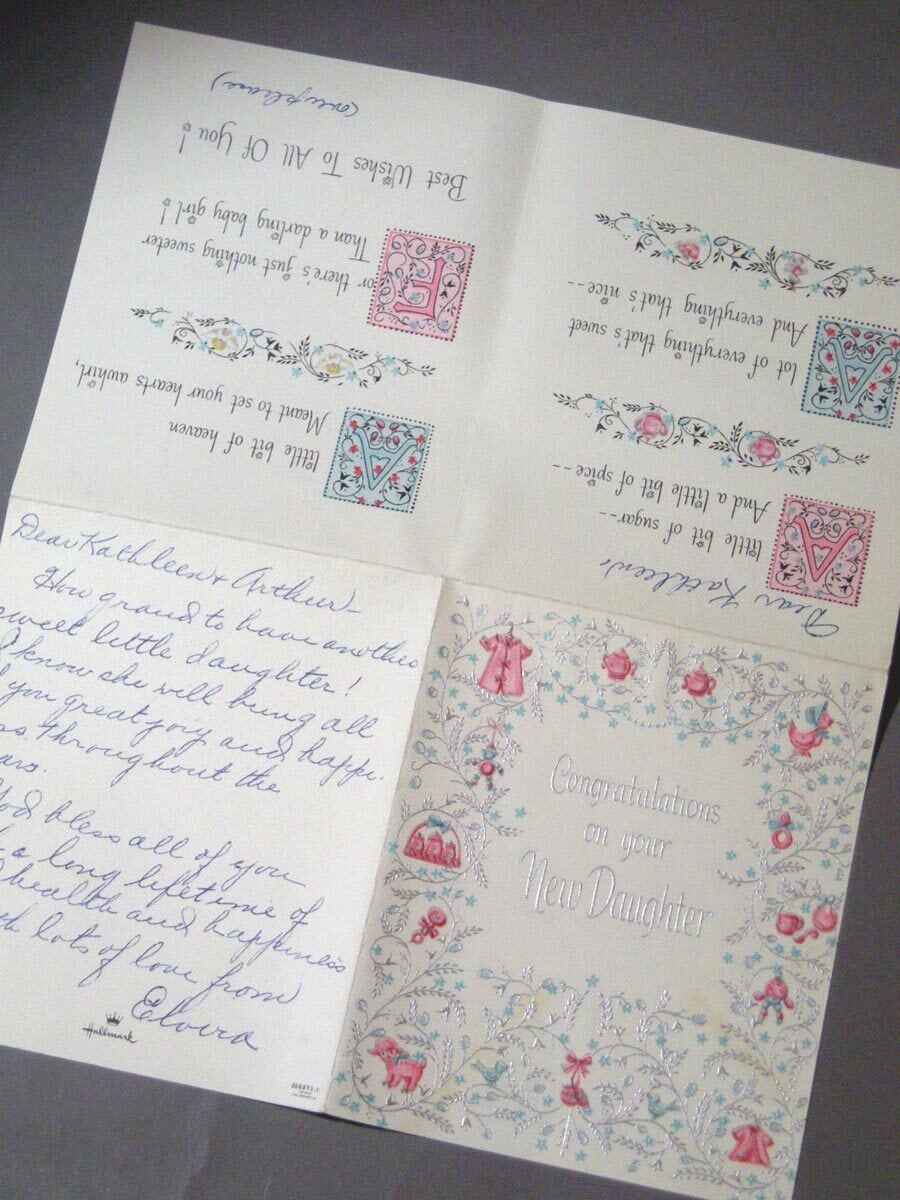 Congratulations
on your
New Daughter
Dear Kathleen's
A little bit of sugar--
And a little bit of spice--
A lot of everything that's sweet
And everything that's nice--
A little bit of heaven
Meant to set your hearts awhirl,
For there's just nothing sweeter
Than a darling baby girl!
Best Wishes To All Of You!
(over please)
Dear Kathleen & Arthur-
How grand to have another
sweet little daughter!
I know she will bring all
you great joy and happi-
ss throughout the
ars.
God bless all of you
a long lifetime of
health and happiness
th lots of love from
Elvira
Hallmark